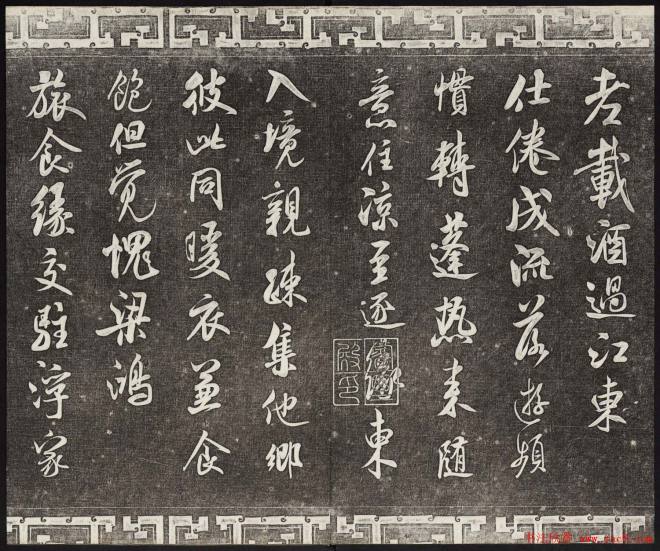 老載酒過江東
仕倦成流落遊頻
慣轉蓬熱来隨
意住涼至逐東
入境親疎集他鄉
彼此同暖衣兼食
飽但觉愧梁鴻
旅食緣交駐浮家
书法欣赏 www.yac8.com